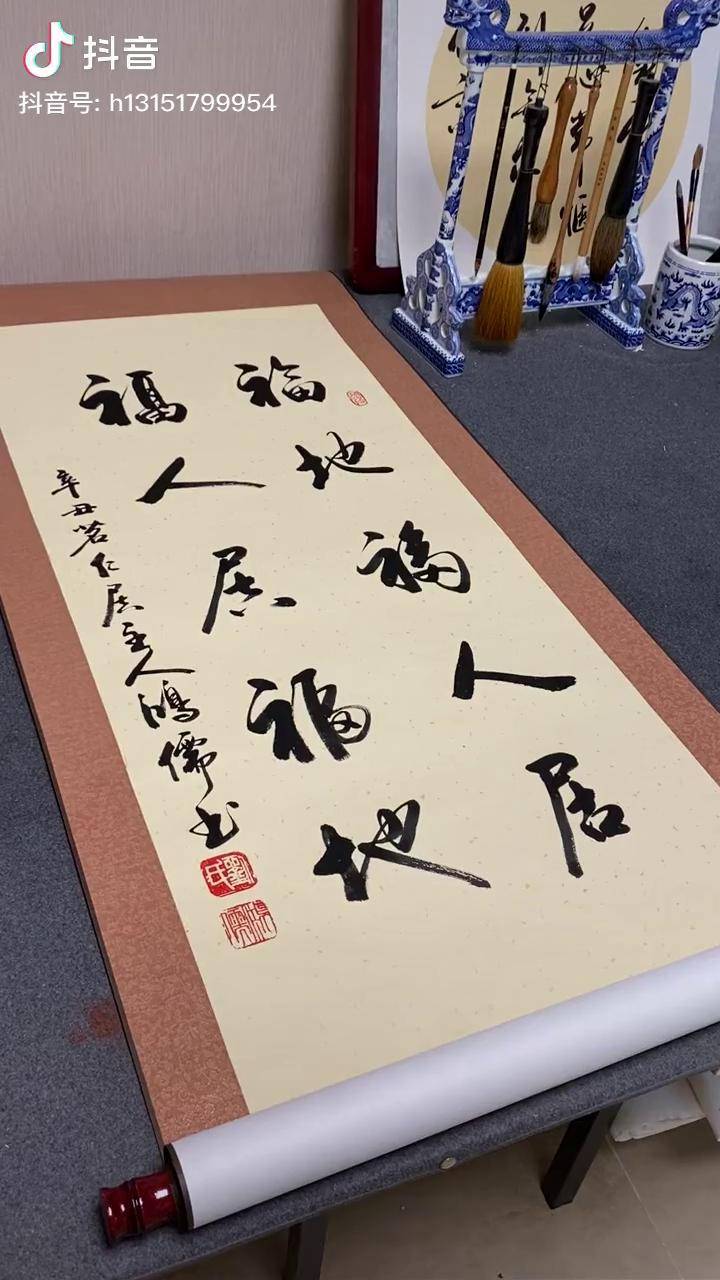 抖音
抖音号: h13151799954
福地福人居
福人居福地
辛丑茗仁居主人鸿儒书
劉氏